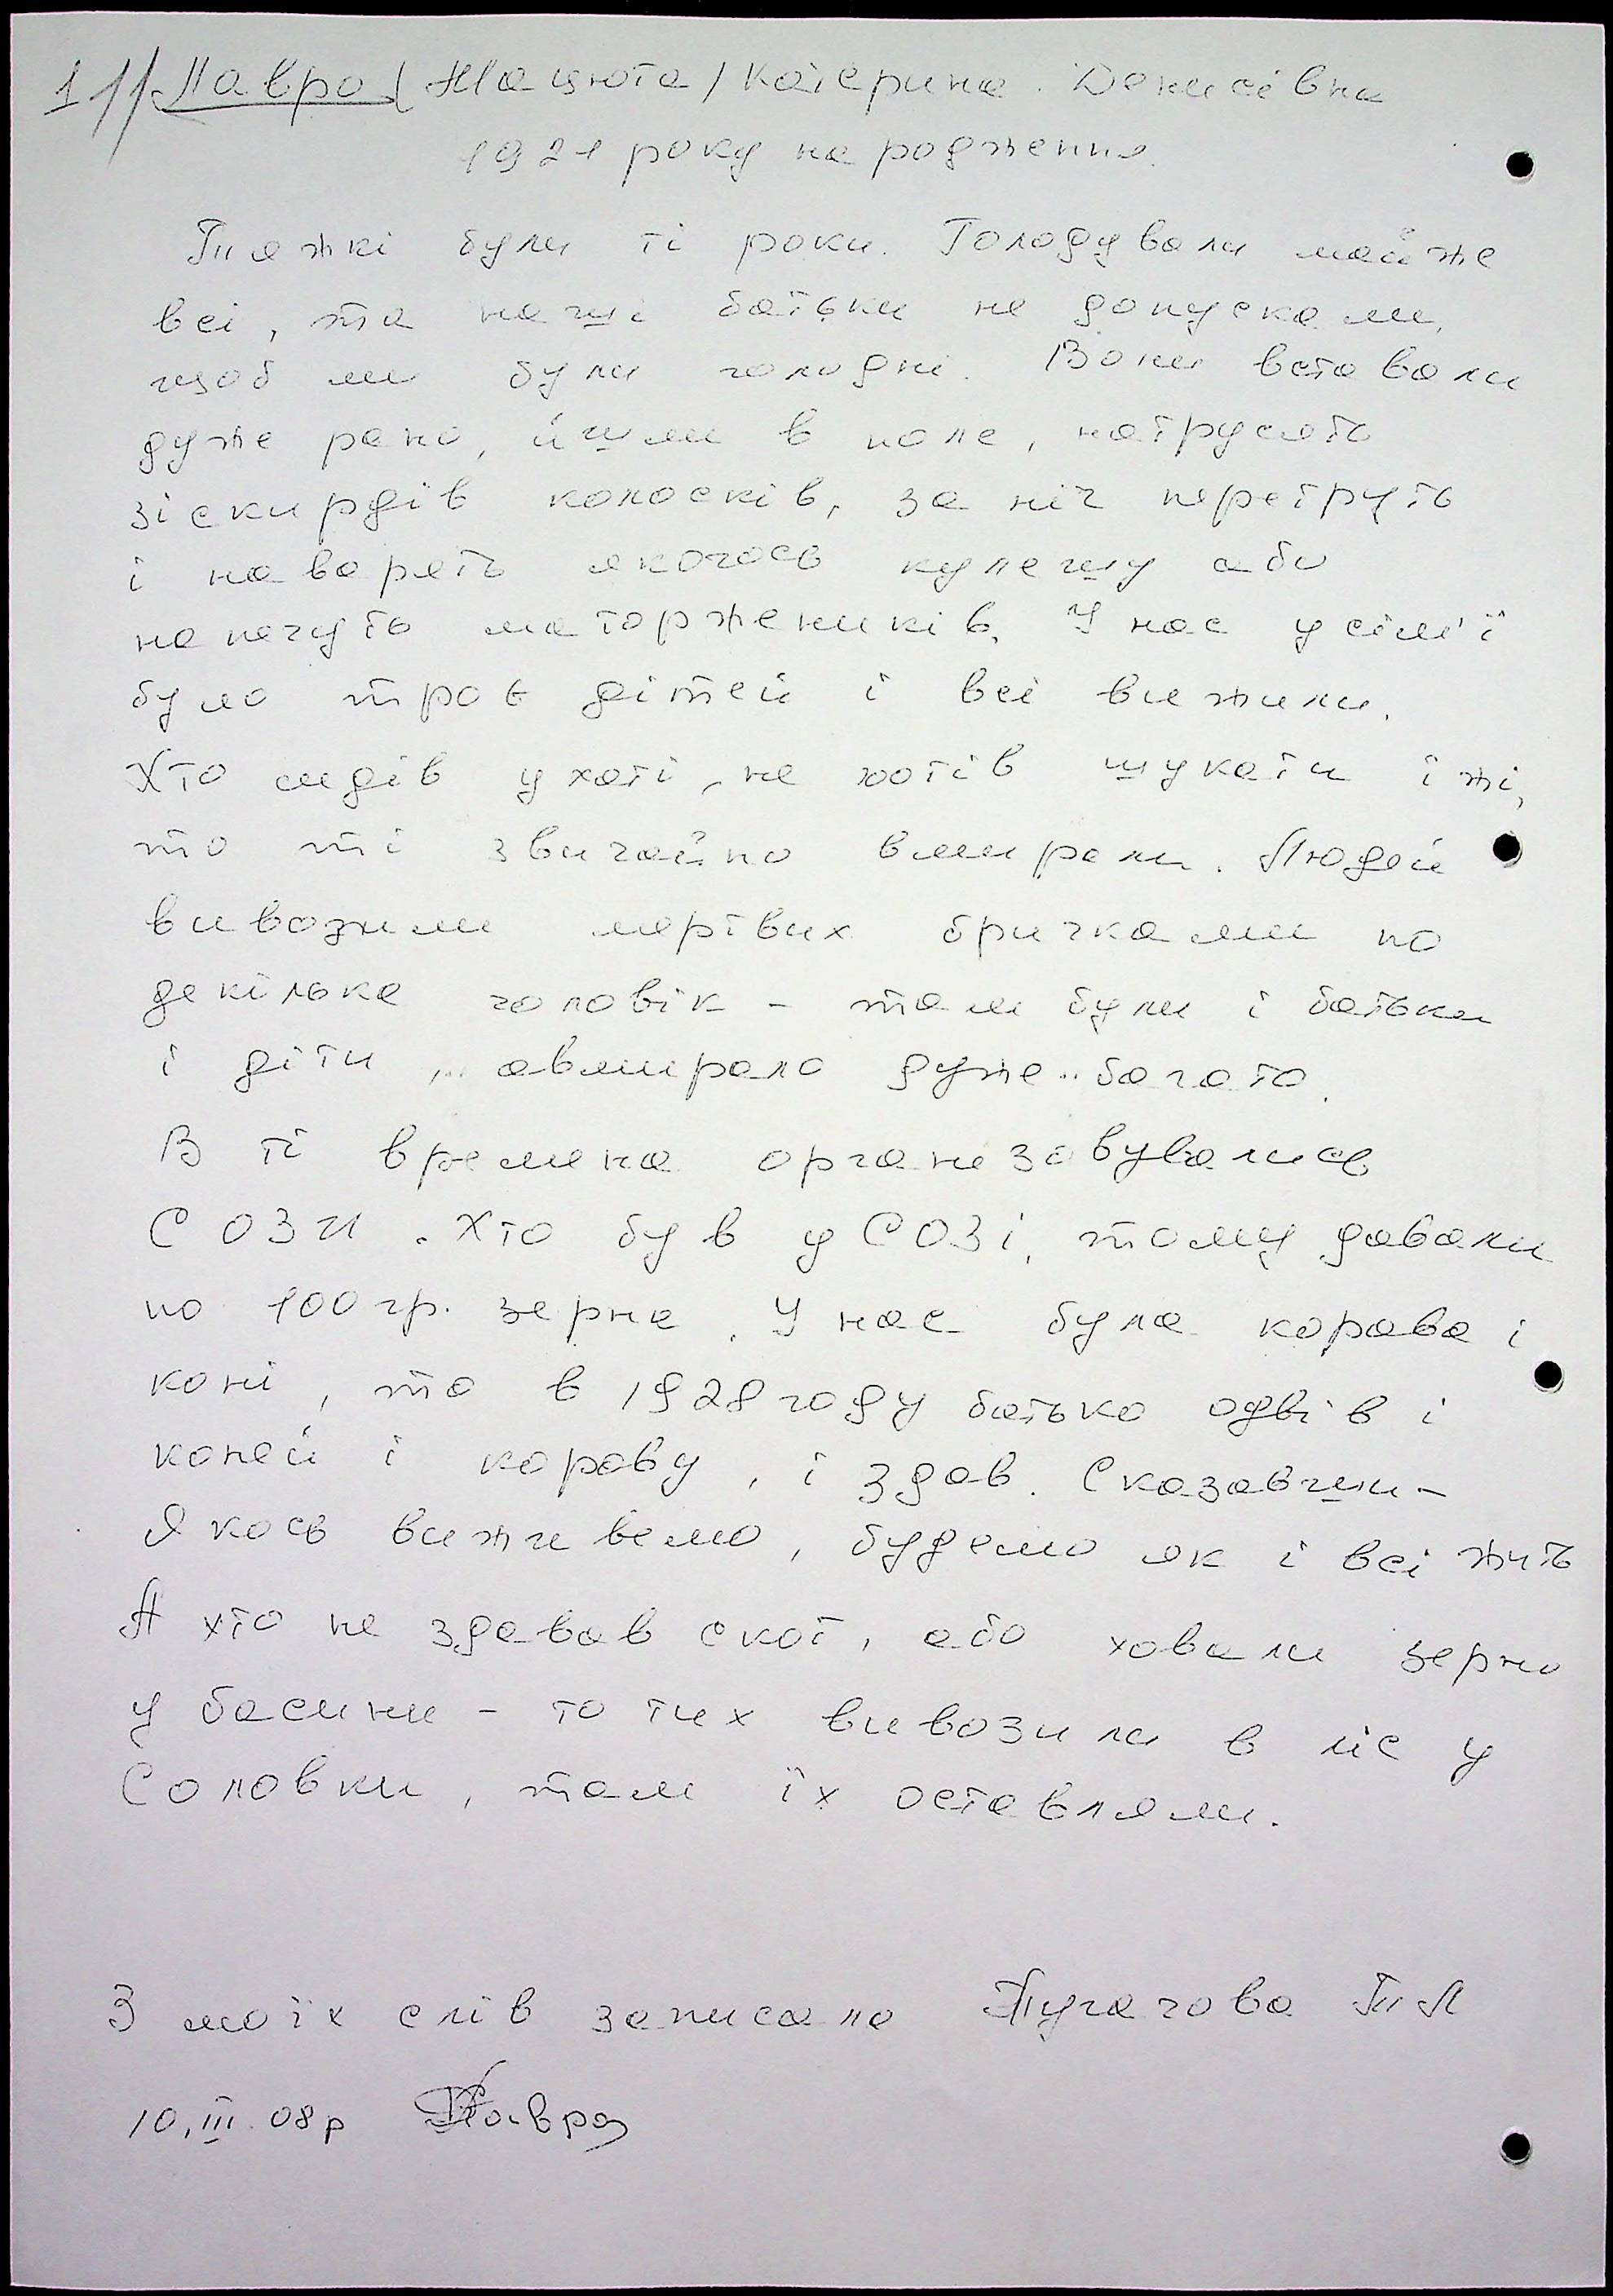 11/ Лавро / Мацюта / Катерина Денисівна
1921 року народження.
Тяжкі були ті роки. Голодували майже
всі, та наші батьки не допускали,
щоб ми були голодні. Вони вставали
дуже рано, йшли в поле, натрусять
зіскирдів колосків, за ніч перетруть
і наварять якогось кулешу або
напечуть маторжеників. У нас у сім'ї
було троє дітей і всі вижили.
Хто сидів у хаті, не хотів шукати їжі,
то ті звичайно вмирали. Людей
вивозили мертвих бричками по
декілька чоловік - там були і батьки
і діти, авмирало дуже багато.
В ті времена организовувались
СОЗи. Хто був у СОЗі, тому давали
по 100 гр. зерна. У нас була корова і
коні, то в 1928 году батько одвів і
коней і корову, і здав. Сказавши -
Якось виживемо, будемо як і всі жить
А хто не здавав скот, або ховали зерно
у басини - то тих вивозили в ліс у
Соловки, там їх оставляли.
З моїх слів записала Пугачова Т Л
10. III. 08 р Лавро